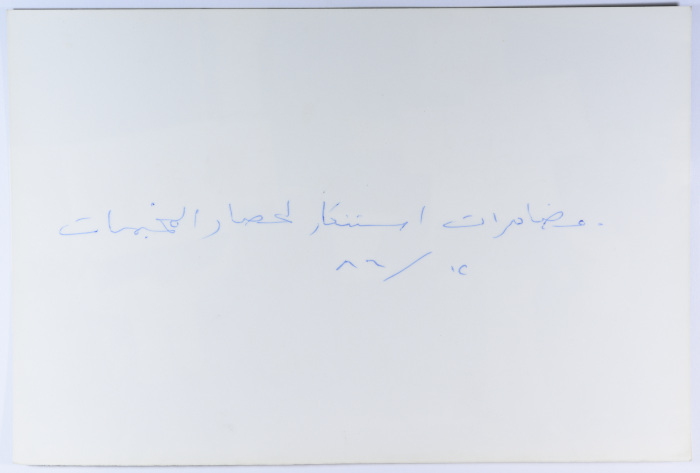 مضاهرات استنكار لحصار المخيمات.
٨٦/١٢